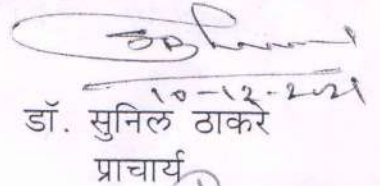 10-12-2021
डॉ. सुनिल ठाकरे
प्राचार्य